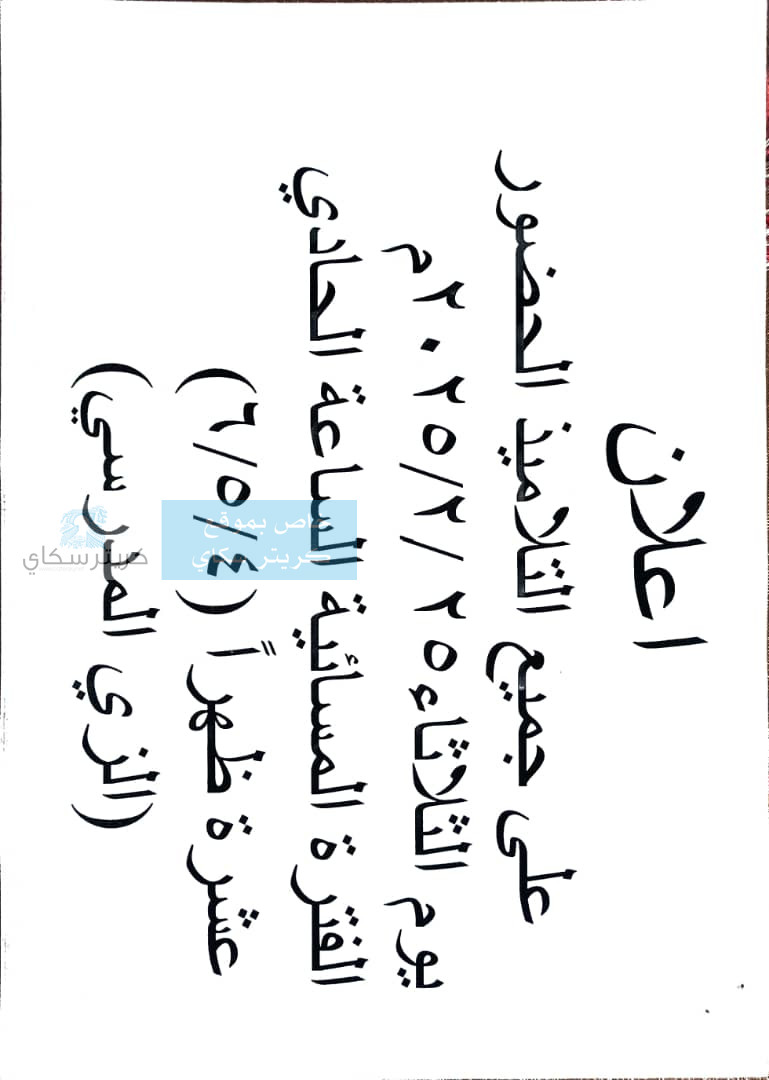 اعلان
على جميع التلاميذ الحضور
يوم الثلاثاء ٢٥ /٢ /٢٠٢٥م
الفترة المسائية الساعة الحادي
عشرة ظهراً (٦/٥/٤)
(الزي المدرسي)
خاص بموقع
كريتر سكاي
كريترسكاي